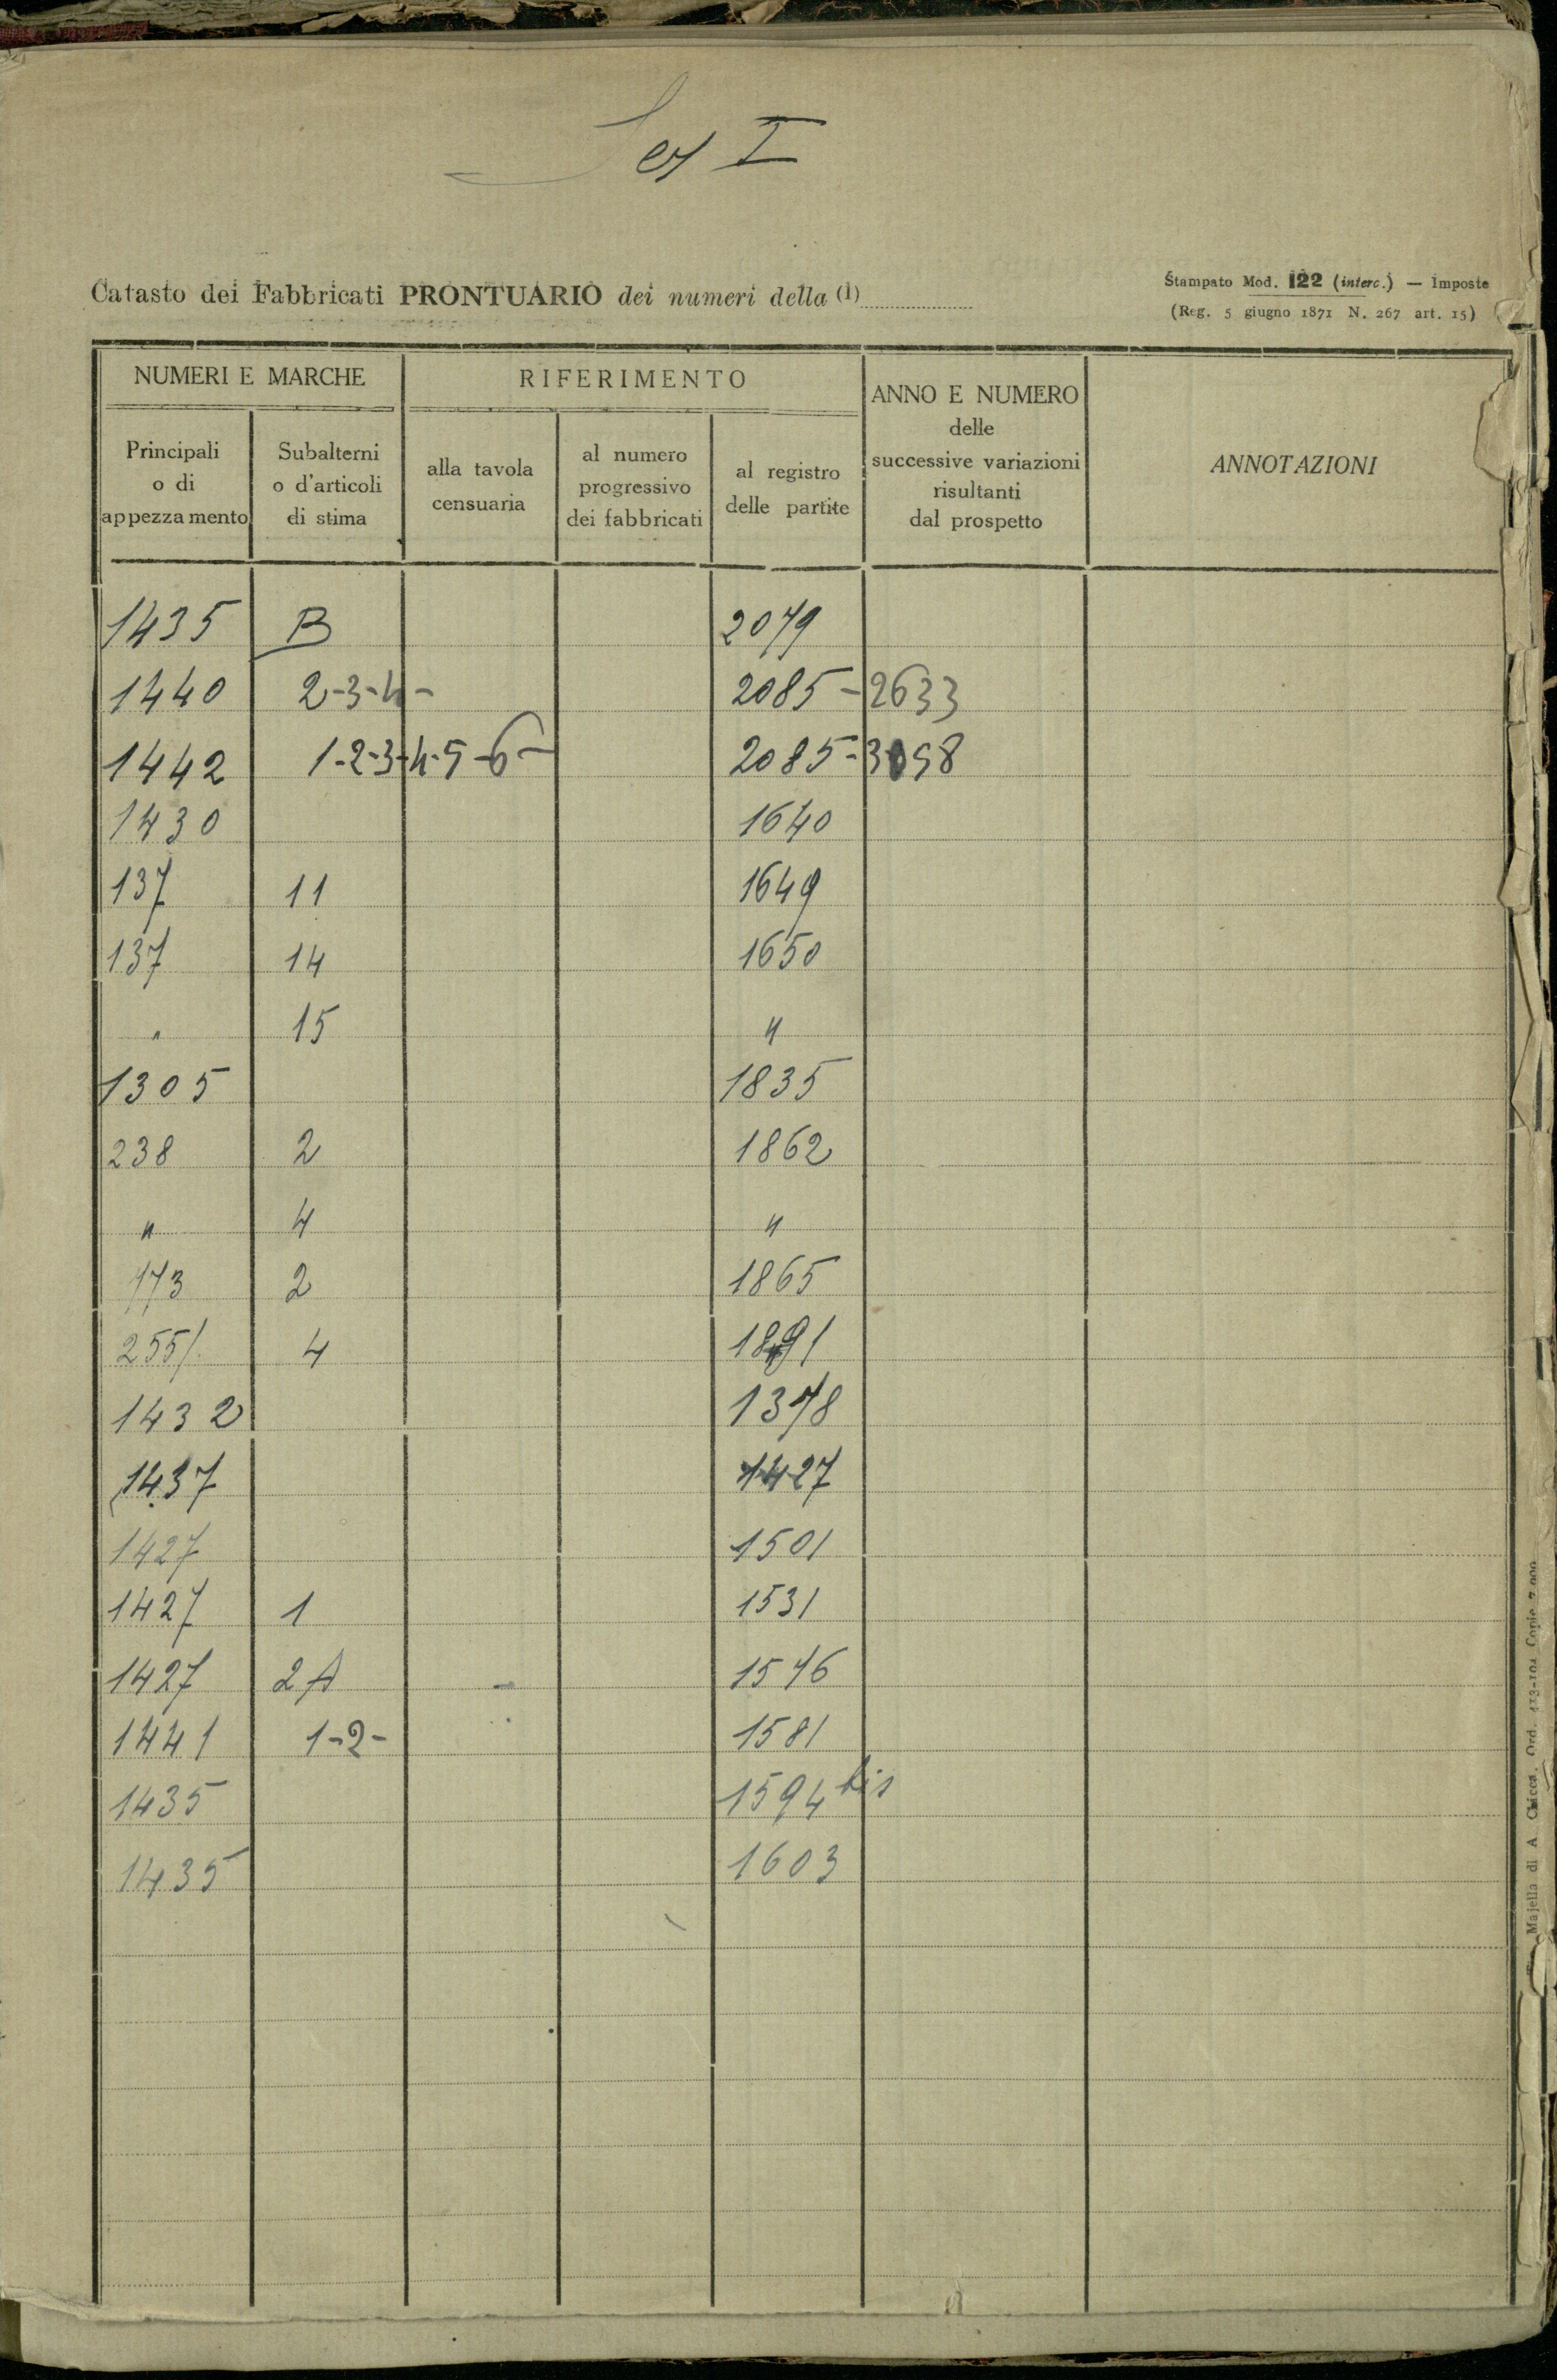 Sez I
Catasto dei Fabbricati PRONTUARIO dei numeri della (1)
Stampato Mod. 122 (interc.) — Imposte
(Reg. 5 giugno 1871 N. 267 art. 15)
NUMERI E MARCHE RIFERIMENTO ANNO E NUMERO delle successive variazioni risultanti dal prospetto ANNOTAZIONI
Principali o di appezzamento Subalterni o d'articoli di stima alla tavola censuaria al numero progressivo dei fabbricati al registro delle partite
1435 B 2079
1440 2-3-4- 2085-2633
1442 1-2-3-4-5-6- 2085-3058
1430 1640
137 11 1649
137 14 1650
" 15 "
1305 1835
238 2 1862
" 4 "
173 2 1865
255/. 4 1891
1432 1378
1437 1427
1427 1501
1427 1 1531
1427 2A 1576
1441 1-2- 1581
1435 1594 bis
1435 1603
Majella di A. Chicca. Ord. Copie